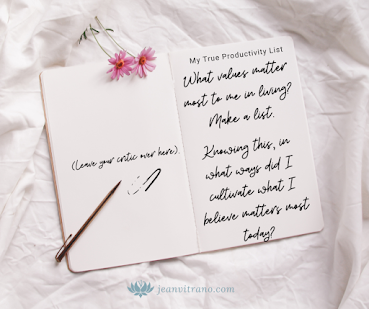 (leave your critic over here).
My True Productivity List
What values matter
most to me in living?
Make a list.
Knowing this, in
what ways did I
cultivate what I
believe matters most
today?
jeanvitrano.com